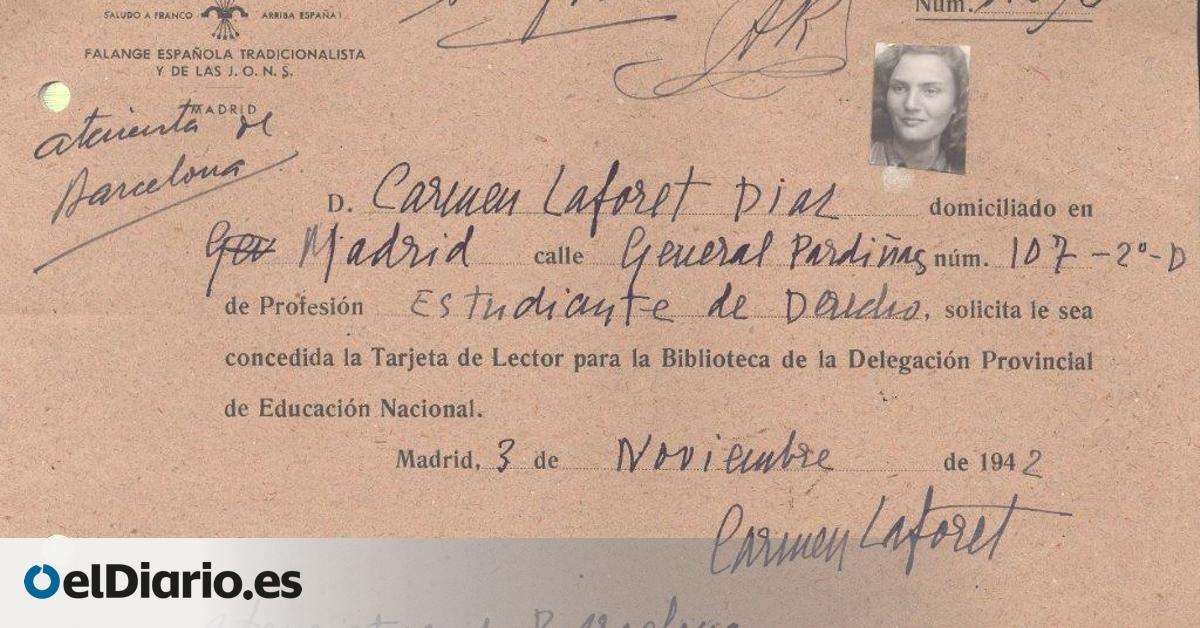 SALUDO A FRANCO ARRIBA ESPAÑA!
FALANGE ESPAÑOLA TRADICIONALISTA
Y DE LAS J. O. N. S.
MADRID
de
Barcelona
Núm.
AR
D. Carmen Laforet Diaz domiciliado en
Madrid calle General Pardiñas núm. 107-2º-D
de Profesión Estudiante de Derecho, solicita le sea
concedida la Tarjeta de Lector para la Biblioteca de la Delegación Provincial
de Educación Nacional.
Madrid, 3 de Noviembre de 1942
Carmen Laforet
elDiario.es